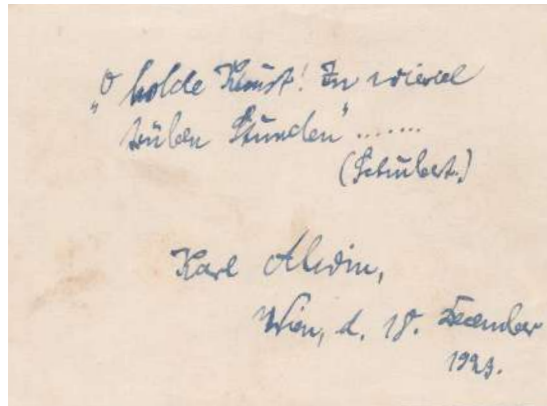 „O holde Kunst! In wieviel
trüben Stunden" .......
(Schubert.)
Karl Alwin,
Wien, d. 18. Dezember
1923.